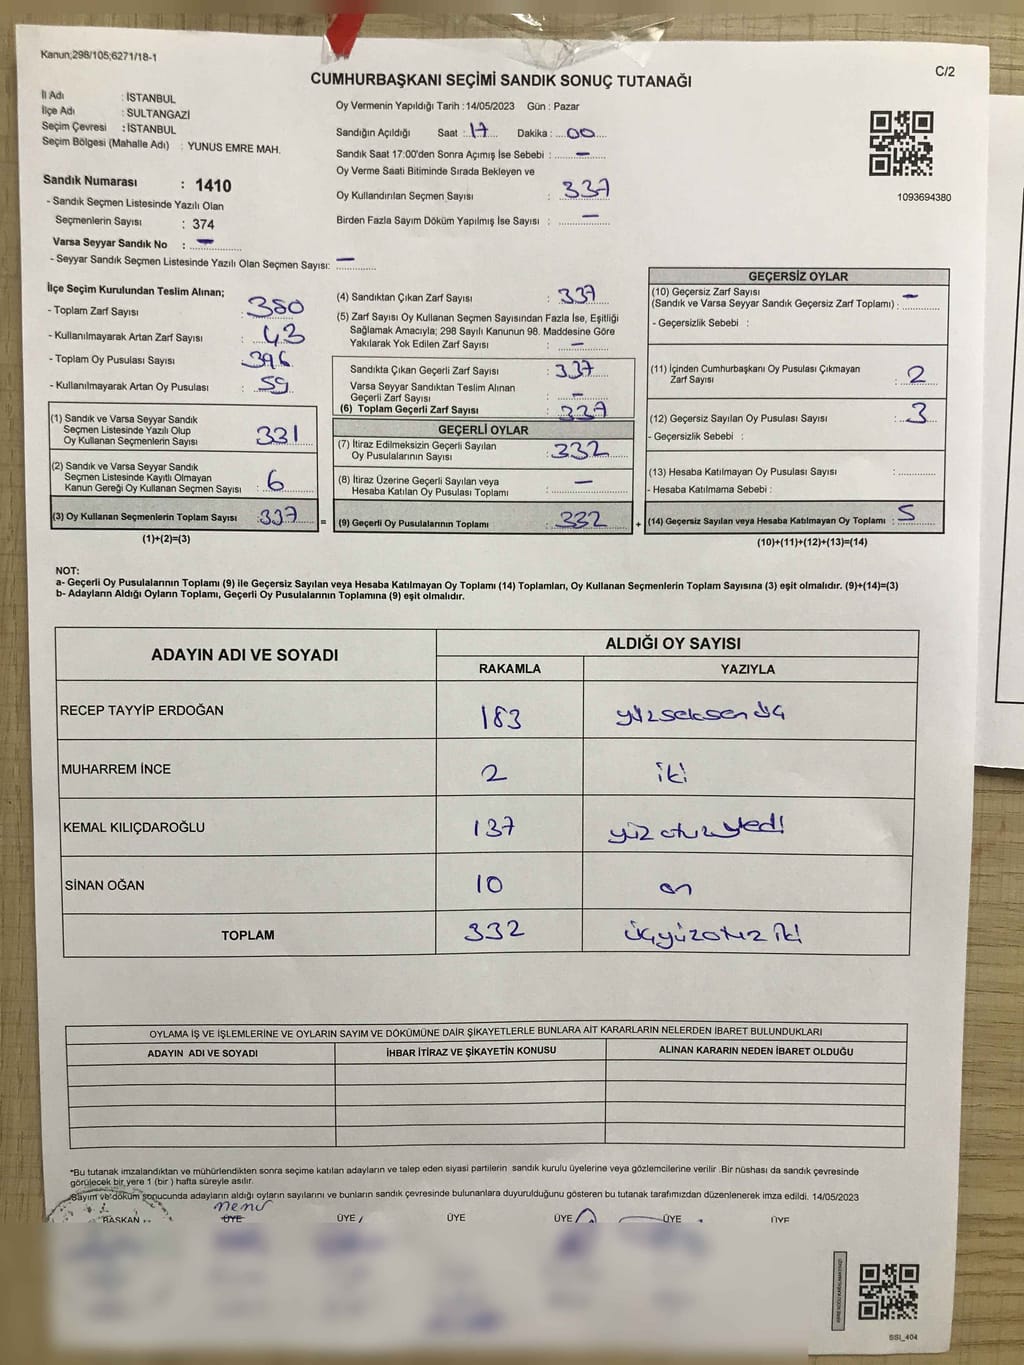 Kanun;298/105;6271/18-1
C/2
CUMHURBAŞKANI SEÇİMİ SANDIK SONUÇ TUTANAĞI
İl Adı : İSTANBUL
İlçe Adı : SULTANGAZİ
Seçim Çevresi : İSTANBUL
Seçim Bölgesi (Mahalle Adı) : YUNUS EMRE MAH.
Sandık Numarası : 1410
- Sandık Seçmen Listesinde Yazılı Olan
Seçmenlerin Sayısı : 374
Varsa Seyyar Sandık No : -
- Seyyar Sandık Seçmen Listesinde Yazılı Olan Seçmen Sayısı: -
Oy Vermenin Yapıldığı Tarih :14/05/2023 Gün : Pazar
Sandığın Açıldığı Saat : 17 Dakika : 00
Sandık Saat 17:00'den Sonra Açımış İse Sebebi : -
Oy Verme Saati Bitiminde Sırada Bekleyen ve
Oy Kullandırılan Seçmen Sayısı : 337
Birden Fazla Sayım Döküm Yapılmış İse Sayısı : -
1093694380
İlçe Seçim Kurulundan Teslim Alınan;
- Toplam Zarf Sayısı : 380
- Kullanılmayarak Artan Zarf Sayısı : 43
- Toplam Oy Pusulası Sayısı : 396
- Kullanılmayarak Artan Oy Pusulası : 59
(1) Sandık ve Varsa Seyyar Sandık
Seçmen Listesinde Yazılı Olup
Oy Kullanan Seçmenlerin Sayısı : 331
(2) Sandık ve Varsa Seyyar Sandık
Seçmen Listesinde Kayıtlı Olmayan
Kanun Gereği Oy Kullanan Seçmen Sayısı : 6
(3) Oy Kullanan Seçmenlerin Toplam Sayısı : 337
(1)+(2)=(3)
(4) Sandıktan Çıkan Zarf Sayısı : 337
(5) Zarf Sayısı Oy Kullanan Seçmen Sayısından Fazla İse, Eşitliği
Sağlamak Amacıyla; 298 Sayılı Kanunun 98. Maddesine Göre
Yakılarak Yok Edilen Zarf Sayısı : -
Sandıkta Çıkan Geçerli Zarf Sayısı : 337
Varsa Seyyar Sandıktan Teslim Alınan
Geçerli Zarf Sayısı : -
(6) Toplam Geçerli Zarf Sayısı : 337
GEÇERLİ OYLAR
(7) İtiraz Edilmeksizin Geçerli Sayılan
Oy Pusulalarının Sayısı : 332
(8) İtiraz Üzerine Geçerli Sayılan veya
Hesaba Katılan Oy Pusulası Toplamı : -
= (9) Geçerli Oy Pusulalarının Toplamı : 332
GEÇERSİZ OYLAR
(10) Geçersiz Zarf Sayısı
(Sandık ve Varsa Seyyar Sandık Geçersiz Zarf Toplamı) : -
- Geçersizlik Sebebi :
(11) İçinden Cumhurbaşkanı Oy Pusulası Çıkmayan
Zarf Sayısı : 2
(12) Geçersiz Sayılan Oy Pusulası Sayısı : 3
- Geçersizlik Sebebi :
(13) Hesaba Katılmayan Oy Pusulası Sayısı :
- Hesaba Katılmama Sebebi :
+ (14) Geçersiz Sayılan veya Hesaba Katılmayan Oy Toplamı : 5
(10)+(11)+(12)+(13)=(14)
NOT:
a- Geçerli Oy Pusulalarının Toplamı (9) ile Geçersiz Sayılan veya Hesaba Katılmayan Oy Toplamı (14) Toplamları, Oy Kullanan Seçmenlerin Toplam Sayısına (3) eşit olmalıdır. (9)+(14)=(3)
b- Adayların Aldığı Oyların Toplamı, Geçerli Oy Pusulalarının Toplamına (9) eşit olmalıdır.
ADAYIN ADI VE SOYADI
ALDIĞI OY SAYISI
RAKAMLA YAZIYLA
RECEP TAYYİP ERDOĞAN 183 yüzseksen üç
MUHARREM İNCE 2 iki
KEMAL KILIÇDAROĞLU 137 yüz otuzyedi
SİNAN OĞAN 10 on
TOPLAM 332 üçyüzotuz iki
OYLAMA İŞ VE İŞLEMLERİNE VE OYLARIN SAYIM VE DÖKÜMÜNE DAİR ŞİKAYETLERLE BUNLARA AİT KARARLARIN NELERDEN İBARET BULUNDUKLARI
ADAYIN ADI VE SOYADI İHBAR İTİRAZ VE ŞİKAYETİN KONUSU ALINAN KARARIN NEDEN İBARET OLDUĞU
*Bu tutanak imzalandıktan ve mühürlendikten sonra seçime katılan adayların ve talep eden siyasi partilerin sandık kurulu üyelerine veya gözlemcilerine verilir .Bir nüshası da sandık çevresinde
görülecek bir yere 1 (bir ) hafta süreyle asılır.
Sayım ve döküm sonucunda adayların aldığı oyların sayılarını ve bunların sandık çevresinde bulunanlara duyurulduğunu gösteren bu tutanak tarafımızdan düzenlenerek imza edildi. 14/05/2023
memur
BAŞKAN ÜYE ÜYE ÜYE ÜYE ÜYE ÜYE
SSİ_404